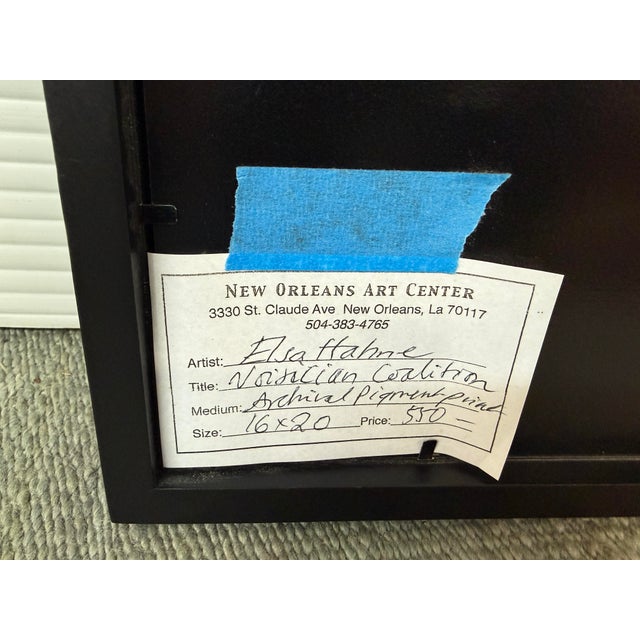 NEW ORLEANS ART CENTER
3330 St. Claude Ave New Orleans, La 70117
504-383-4765
Artist: Elsa Hahne
Title: Noisician Coalition
Medium: Archival Pigment print
Size: 16x20 Price: 550=